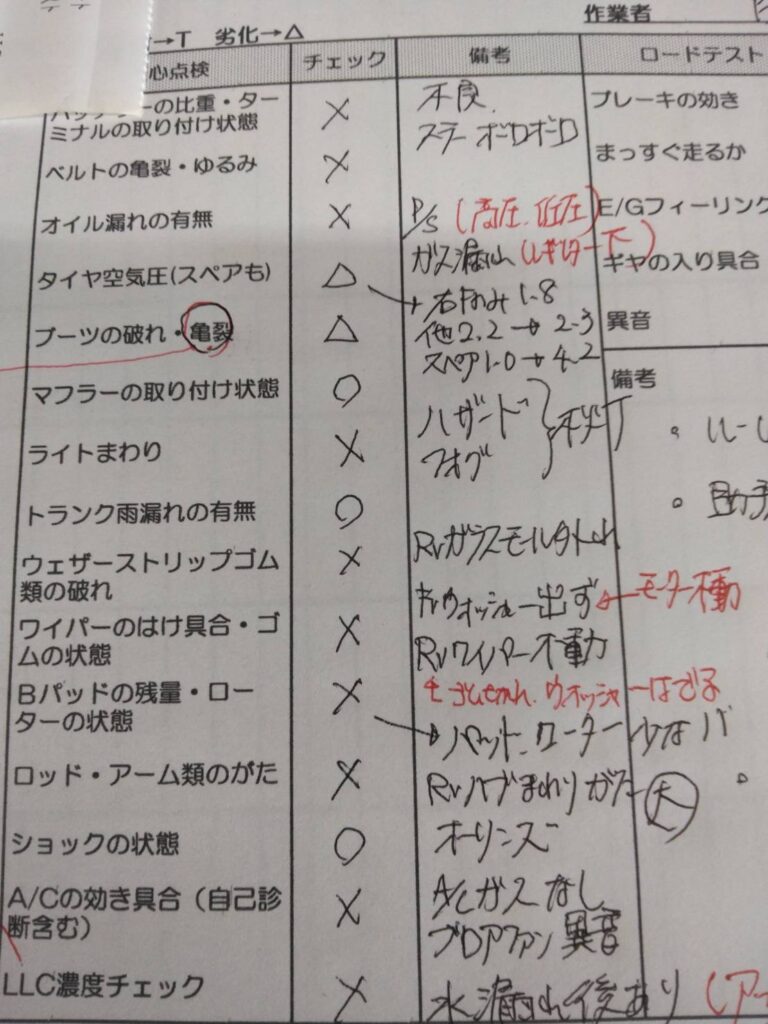 作業者
→T 劣化→△
心点検 チェック 備考 ロードテスト
バッテリーの比重・ター
ミナルの取り付け状態 × 不良
ブレーキの効き
ベルトの亀裂・ゆるみ ×
まっすぐ走るか
オイル漏れの有無 × P/S (高圧、低圧)
E/Gフィーリング
ガス漏れ
ギヤの入り具合
タイヤ空気圧(スペアも) △ → 1.8
他2.2→2.3
異音
ブーツの破れ・亀裂 △ スペア1.0→4.2
備考
マフラーの取り付け状態 ○
ハザード
ライトまわり × フォグ
トランク雨漏れの有無 ○
ウェザーストリップゴム
類の破れ × Rrガラスモール外れ
ウォッシャー出ず ← モーター不動
ワイパーのはけ具合・ゴ
ムの状態 × Rrワイパー不動
ウォッシャーはでる
Bパッドの残量・ロー
ターの状態 × → パット、ローター
ロッド・アーム類のがた × Rrハブまわりがた 大
ショックの状態 ○ オーリンズ
A/Cの効き具合(自己診
断含む) × A/Cガスなし
ブロアファン異音
LLC濃度チェック × 水漏れ後あり